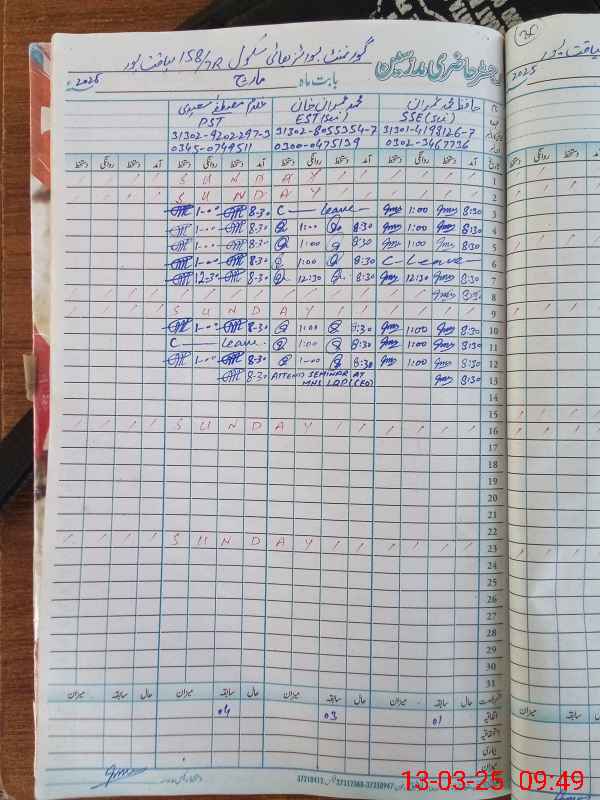 گورنمنٹ بوائز ہائی سکول 158/7R لیاقت پور
رجسٹر حاضری مدرسین
بابت ماہ مارچ 2025
حافظ محمد عمران
SSE (سائنس)
31301-4198126-7
0302-3467736
محمد عمران خان
EST (سائنس)
31302-8055354-7
0300-0475139
غلام مصطفیٰ سعیدی
PST
31302-9202297-3
0345-0749511
تاریخ آمد دستخط روانگی دستخط آمد دستخط روانگی دستخط آمد دستخط روانگی دستخط آمد دستخط روانگی دستخط
1 SUNDAY
2 SUNDAY
3 8:30 1:00 C — Leave — 8-30 1-00
4 8:30 1:00 8:30 1:00 8-30 1-00
5 8:30 1:00 8:30 1:00 8-30 1-00
6 C — Leave — 8:30 1:00 8-30 1-00
7 8:30 12:30 8:30 12:30 8-30 12-30
8 8:30
9 SUNDAY
10 8:30 1:00 8:30 1:00 8-30 1-00
11 8:30 1:00 8:30 1:00 C — Leave
12 8:30 1:00 8:30 1-00 8-30 1-00
13 8:30 ATTEND SEMINAR AT 8-30
14
15
16 SUNDAY
17
18
19
20
21
22
23 SUNDAY
24
25
26
27
28
29
30
31
حال سابقہ میزان حال سابقہ میزان حال سابقہ میزان حال سابقہ میزان
اتفاقیہ 01 03 04
استحقاقیہ
بیماری
میزان
2025
لیاقت پور
13-03-25 09:49